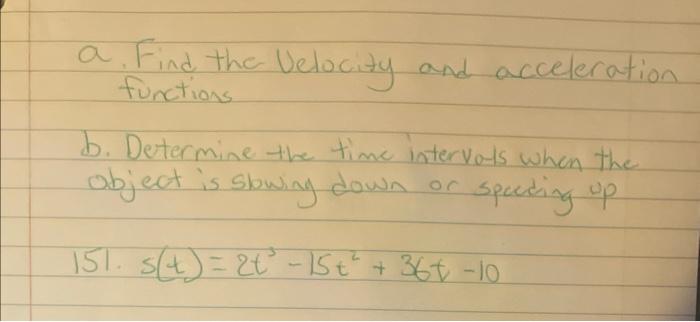 a. Find the Velocity and acceleration
functions
b. Determine the time intervals when the
object is slowing down or speeding up
151. s(t) = 2t³ - 15t² + 36t - 10